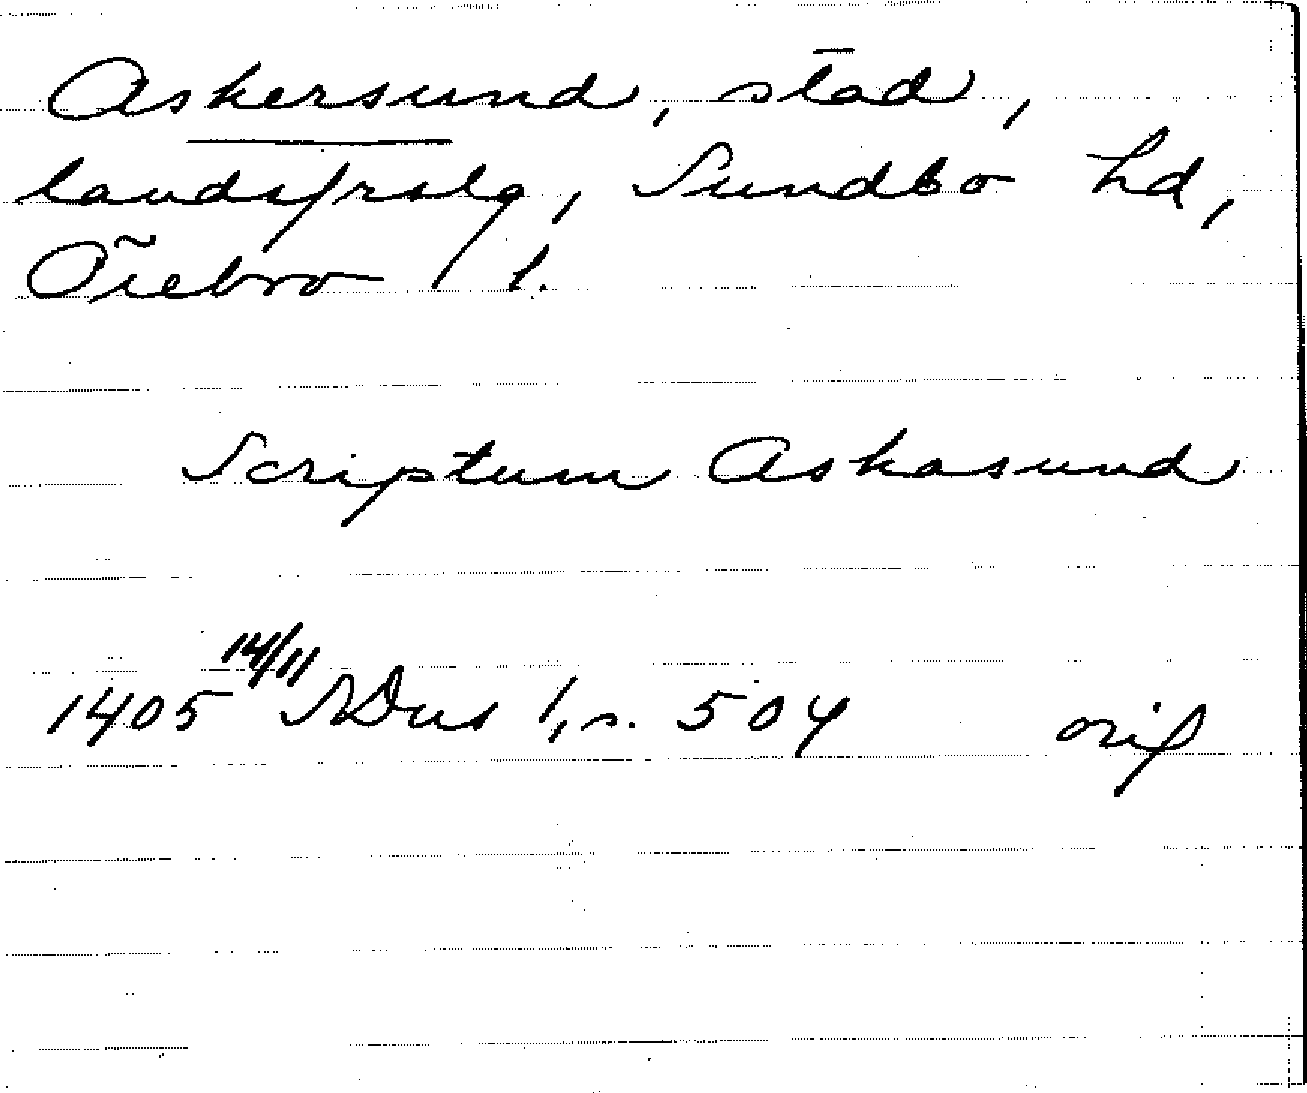 Askersund, stad,
landsfrslg, Sundbo hd,
Örebro l.
Scriptum Askasund
1405 14/11 SDns 1, s. 504 orig